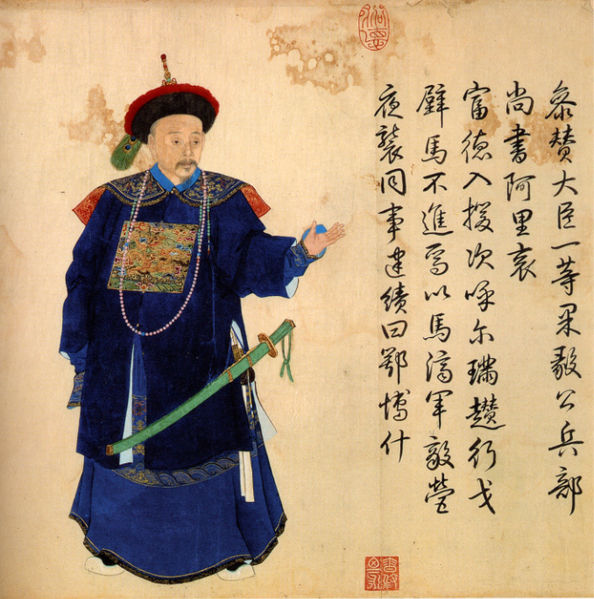 叅賛大臣一等果毅公兵部
尚書阿里袞
富德入援次呼尔璊趲行戈
壁馬不進焉以馬濟軍敵營
夜襲同事建績曰鄂愽什